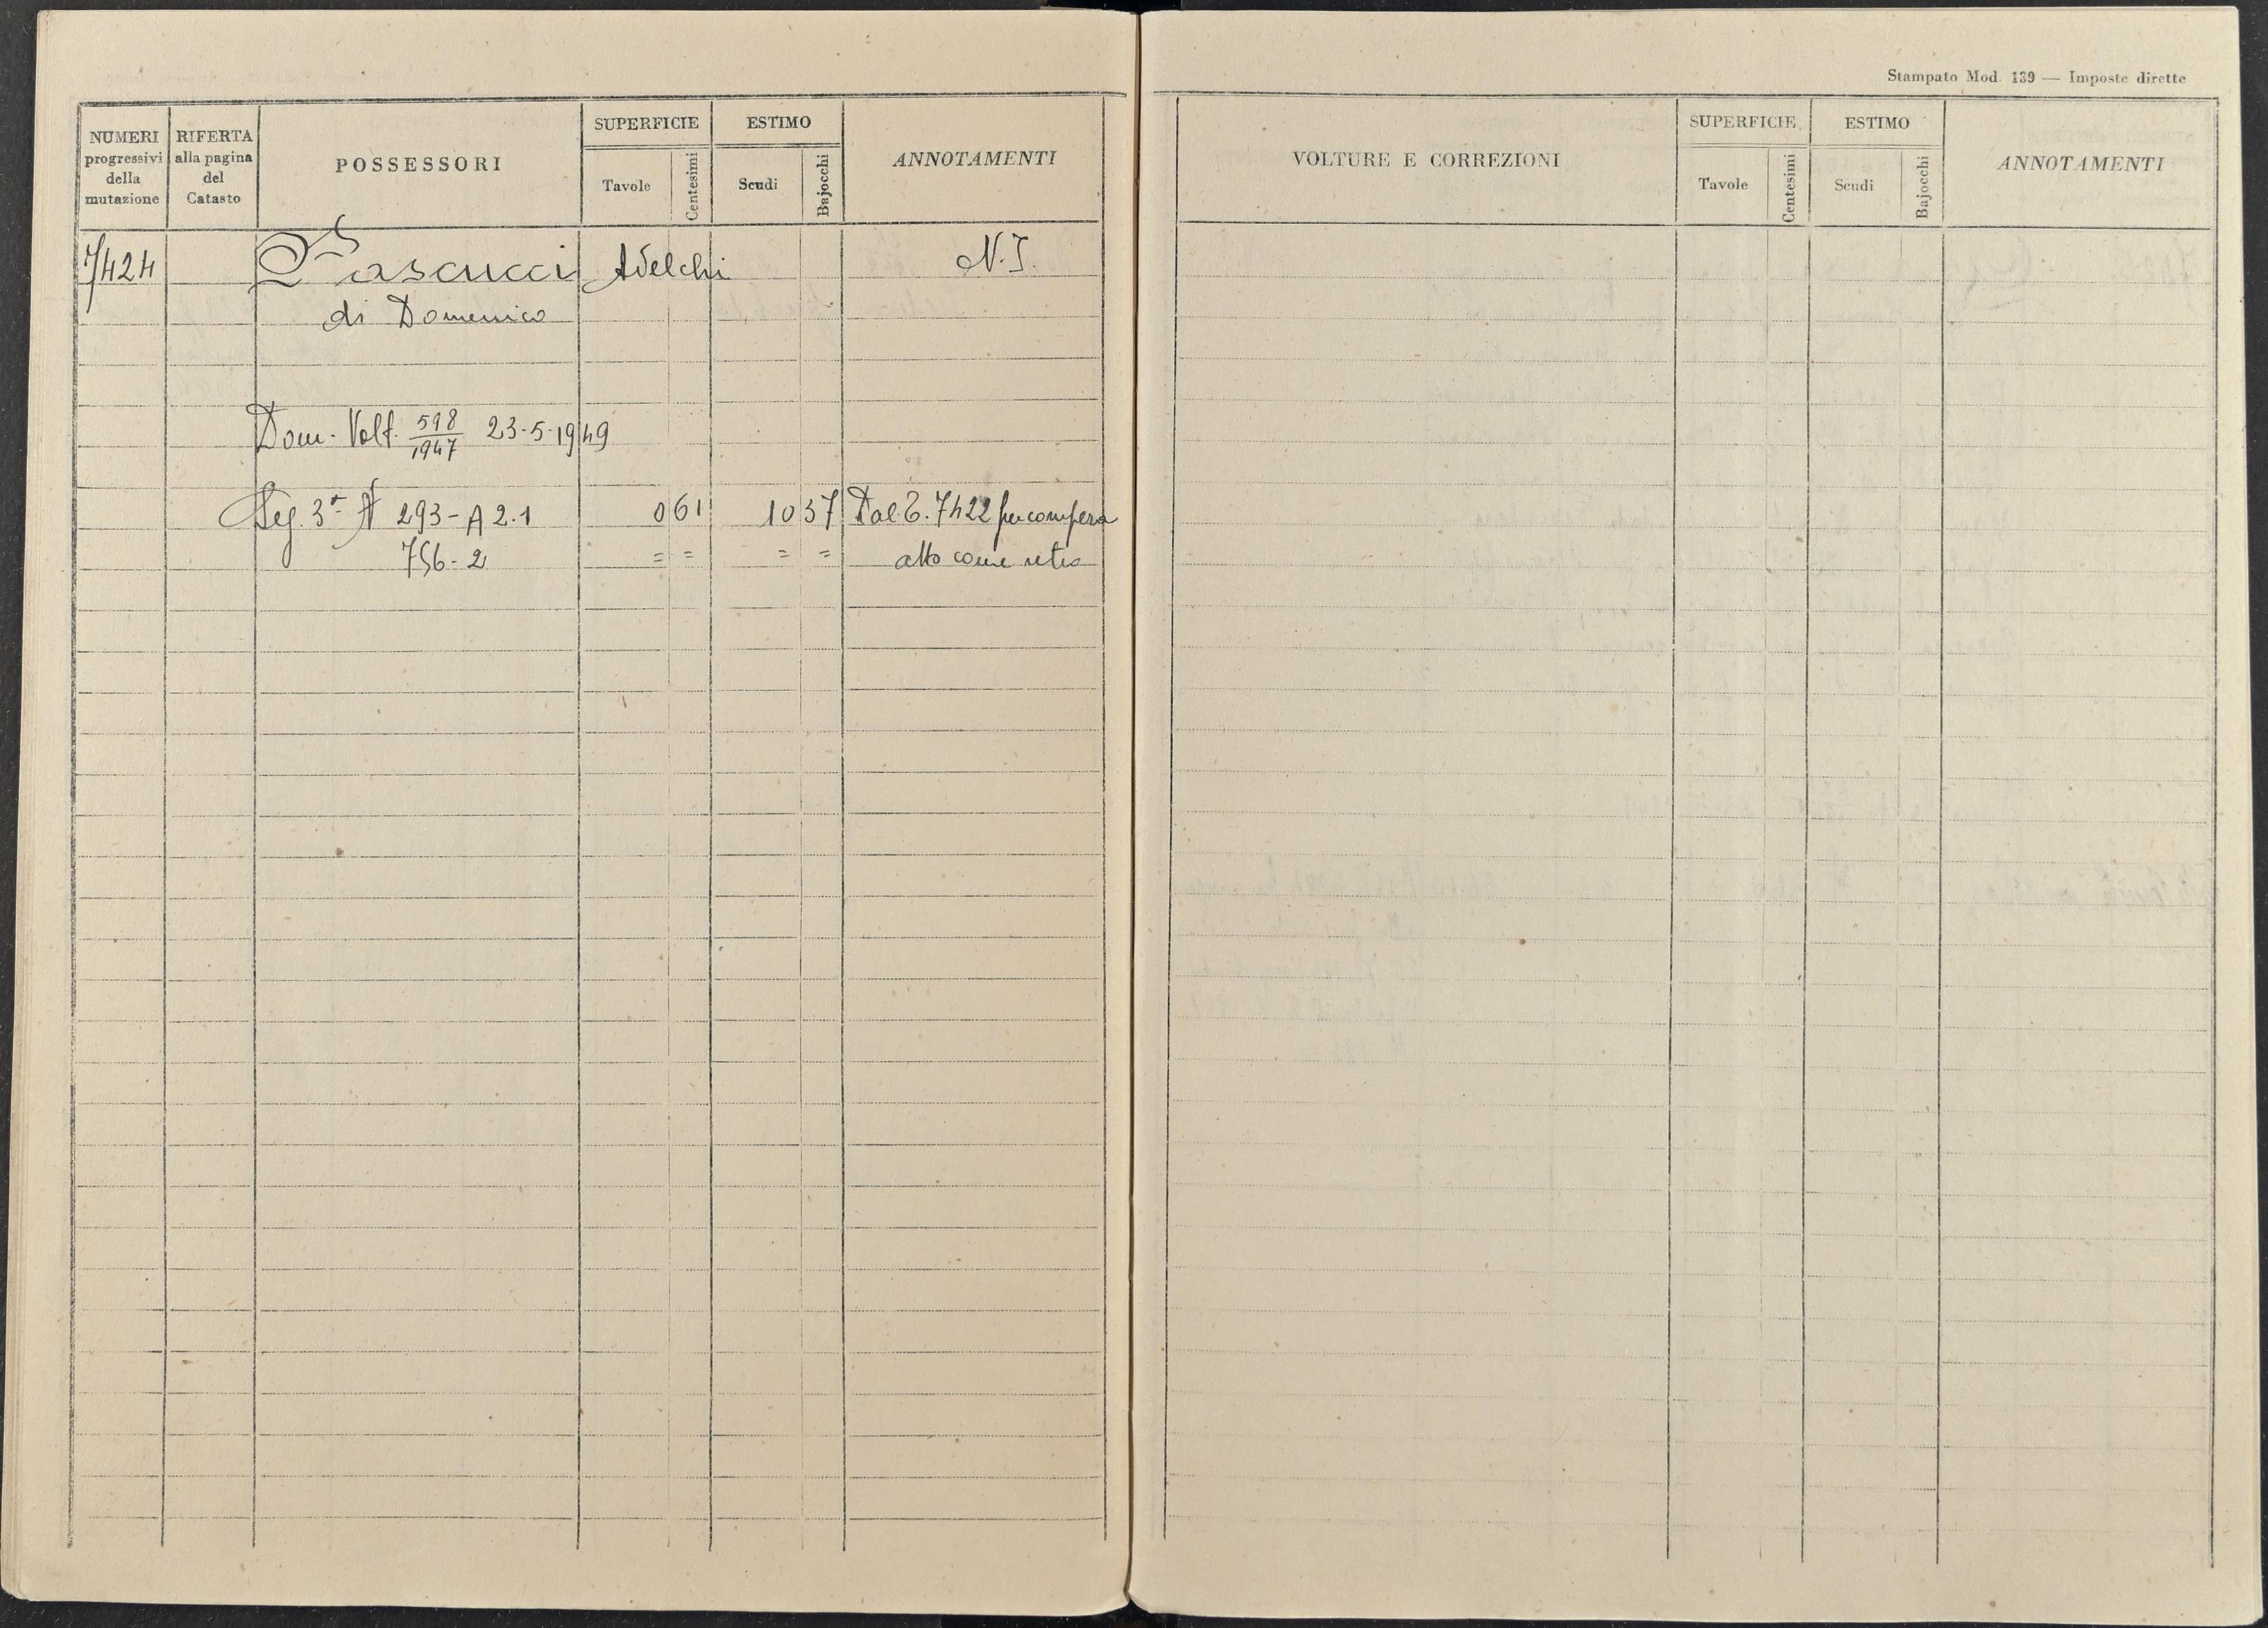 Stampato Mod. 139 — Imposte dirette
NUMERI progressivi della mutazione
RIFERTA alla pagina del Catasto
POSSESSORI
SUPERFICIE
Tavole
Centesimi
ESTIMO
Scudi
Bajocchi
ANNOTAMENTI
7424 Pascucci Adelchi N.I.
di Domenico
Dom. Volt. 598/1947 23-5-1949
Seg. 3ª N 293-A 2.1 0 61 10 37 Dal. C. 7422 per compera
756-2 = = = = atto come retro
VOLTURE E CORREZIONI
SUPERFICIE
Tavole
Centesimi
ESTIMO
Scudi
Bajocchi
ANNOTAMENTI